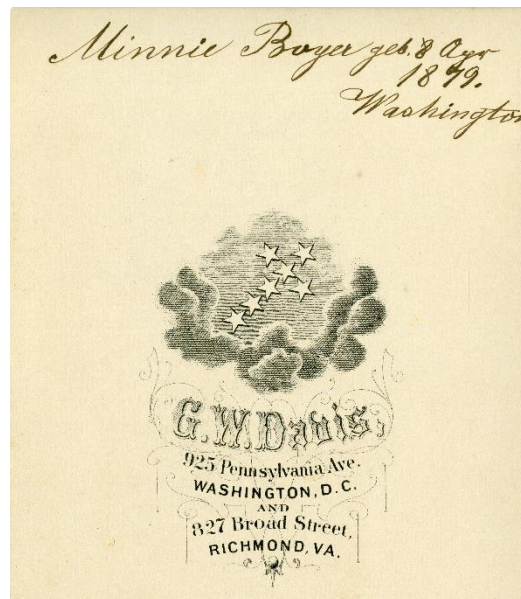 Minnie Boyer geb. 8 Apr
1879.
Washington
G.W. Davis,
925 Pennsylvania Ave.
WASHINGTON, D.C.
AND
827 Broad Street,
RICHMOND, VA.